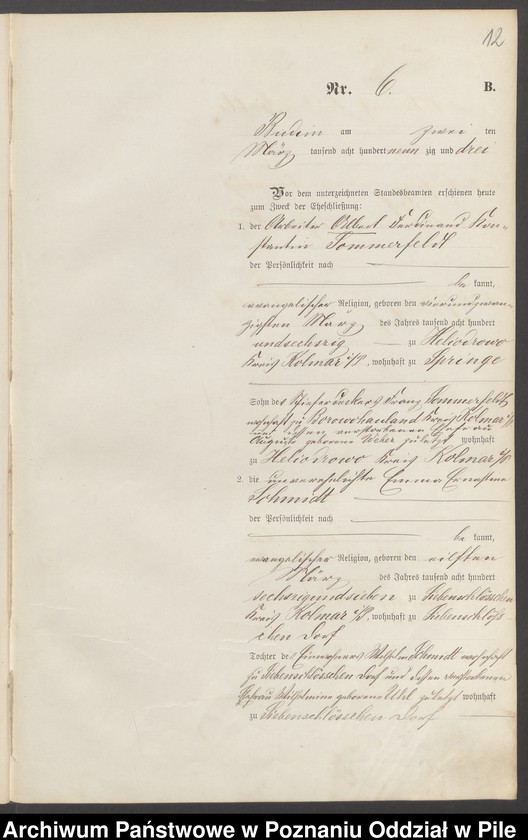 12
Nr. 6. B.
Budsin am zwei ten
März tausend acht hundert neun zig und drei
Vor dem unterzeichneten Standesbeamten erschienen heute
zum Zweck der Eheschließung:
1. der Arbeiter Albert Ferdinand Kon-
stantin Tommerfeldt
der Persönlichkeit nach
be kannt,
evangelischer Religion, geboren den vierundzwan-
zigsten März des Jahres tausend acht hundert
undsechszig zu Heliodrowo
Kreis Kolmar i/P, wohnhaft zu Springe
Sohn des Schieferdeckers Franz Tommerfeldt
wohnhaft zu Borowohauland Kreis Kolmar i/P
und dessen verstorbenen Ehefrau
Auguste geborene zuletzt wohnhaft
zu Heliodrowo Kreis Kolmar i/P
2. die unverehelichte Emma Ernestine
Schmidt
der Persönlichkeit nach
be kannt,
evangelischer Religion, geboren den eilften
März des Jahres tausend acht hundert
sechszigundsieben zu Siebenschlösschen
Kreis Kolmar i/P, wohnhaft zu Siebenschlöss
chen Dorf
Tochter des Wilhelm Schmidt wohnhaft
zu Siebenschlösschen Dorf und dessen verstorbenen
Ehefrau Wilhelmine geborene Uhl zuletzt wohnhaft
zu Siebenschlösschen Dorf
Archiwum Państwowe w Poznaniu Oddział w Pile